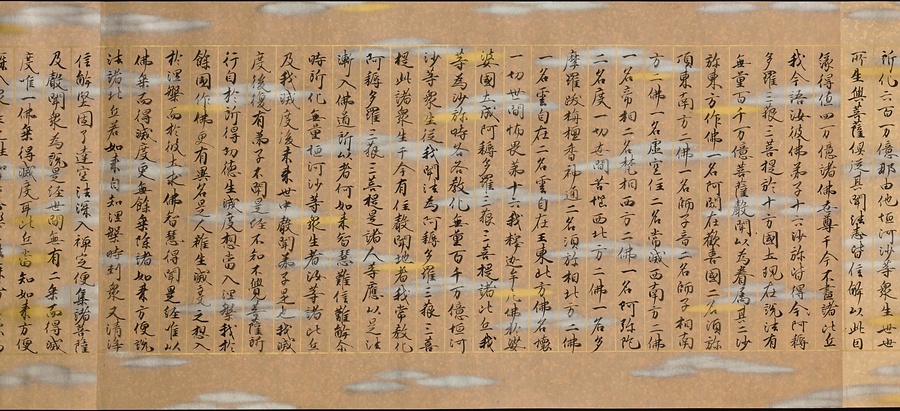 所化六百万億那由他恒河沙等衆生世世
所生與菩薩俱從其聞法悉皆信解以此因
緣得值四万億諸佛世尊于今不盡諸比丘
我今語汝彼佛弟子十六沙弥皆得今阿耨
多羅三藐三菩提於十方國土現在説法有
無量百千万億菩薩聲聞以為眷属其二沙
弥東方作佛一名阿閦在歡喜國二名須弥
頂東南方二佛一名師子音二名師子相南
方二佛一名虛空住二名常滅西南方二佛
一名帝相二名梵相西方二佛一名阿弥陀
二名度一切世間苦惱西北方二佛一名多
摩羅跋栴檀香神通二名須弥相北方二佛
一名雲自在二名雲自在王東北方佛名壞
一切世間怖畏第十六我釋迦牟尼佛於娑
婆國土成阿耨多羅三藐三菩提諸比丘我
等為沙弥時各各教化無量百千万億恒河
沙等衆生從我聞法為阿耨多羅三藐三菩
提此諸衆生于今有住聲聞地者我常教化
阿耨多羅三藐三菩提是諸人等應以是法
漸入佛道所以者何如来智慧難信難解尒
時所化無量恒河沙等衆生者汝等諸比丘
及我滅度後未来世中聲聞弟子是也我滅
度後復有弟子不聞是經不知不覺菩薩所
行自於所得功德生滅度想當入涅槃我於
餘國作佛更有異名是人雖生滅度之想入
於涅槃而於彼土求佛智慧得聞是經唯以
佛乗而得滅度更無餘乗除諸如来方便説
法諸比丘若如来自知涅槃時到衆又清淨
信解堅固了達空法深入禪定便集諸菩薩
及聲聞衆為説是經世間無有二乗而得滅
度唯一佛乗得滅度耳比丘當知如来方便